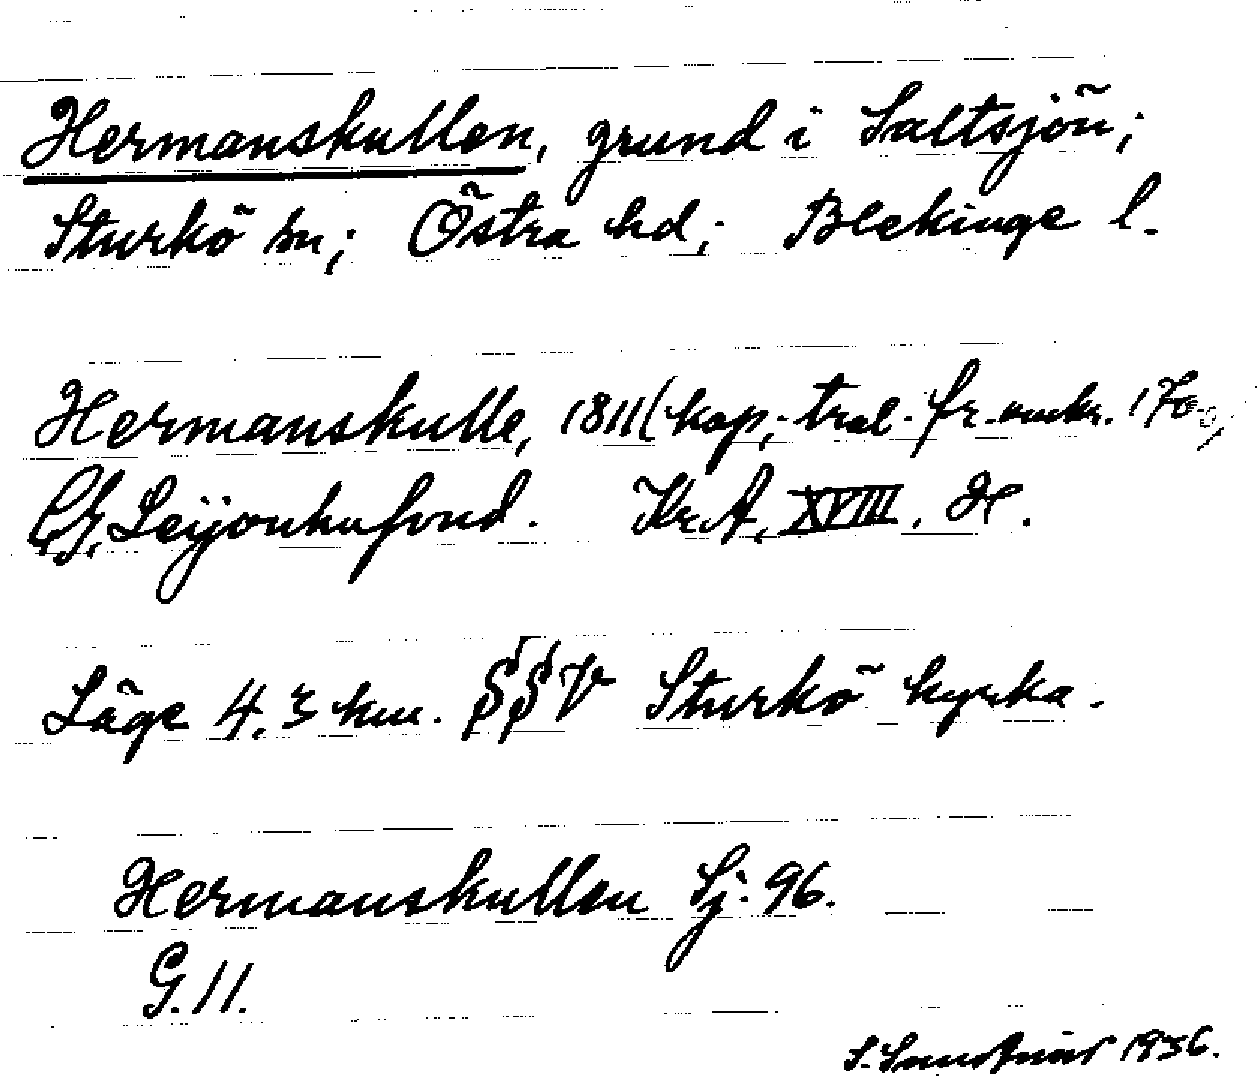 Hermanskullen, grund i Saltsjön;
Sturkö sn; Östra hd; Blekinge l.
Hermanskulle, 1811 (kop; trol. fr. omkr. 170.,
Leijonhufvud. Kr.A. XVIII. H.
Läge 4.3 km. SSV Sturkö kyrka.
Hermanskullen Sj. 96.
G. 11.
1936.